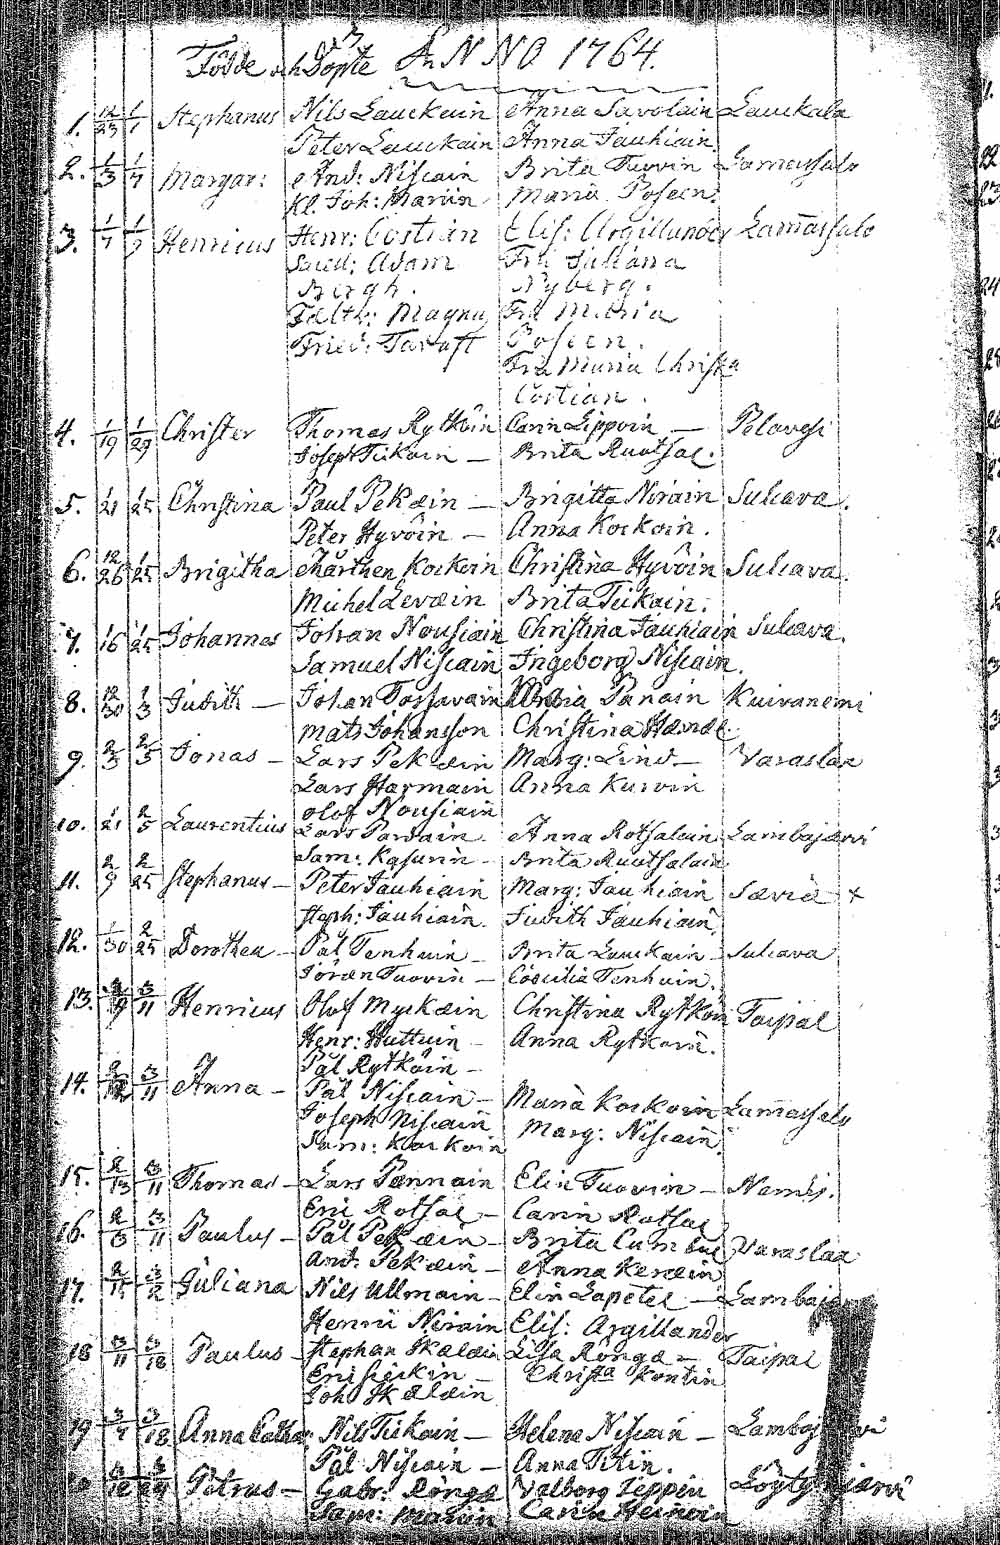 Födde och Döpte ANNO 1764.
1. 12/23 1/1 Stephanus Nils Lauckain Anna Savolain Lauckala
Peter Lauckain Anna Jauhiain
2. 1/3 1/7 Margar: And: Niscain Brita Tuovin Lamassalo
Kl. Joh: Manin Maria Poseen.
3. 1/7 1/9 Henricus Henr: Costian Elis: Argillander Lamassalo
Adam Fru Juliana
Bergh. Nyberg.
Fältk: Magnus Fru Maria
Fried: Tavast Poseen.
Fru Maria Christa
Costian.
4. 1/19 1/29 Christer Thomas Rytköin Carin Lippoin — Pelavesi
Joseph Tickain — Brita Ruotsal.
5. 1/21 1/25 Christina Paul Pekæin — Brigitta Nirain Sulcava.
Peter Hyvöin — Anna Kockoin.
6. 12/26 1/25 Brigitha Mårthen Kockoin Christina Hyvöin Sulcava.
Michel Levæin Brita Tickain.
7. 1/16 1/25 Johannes Johan Nousiain Christina Jauhiain Sulcava.
Samuel Niscain Ingeborg Niscain.
8. 12/30 1/3 Judith — Johan Tossavain Maria Panain Kuivanemi
Mats Johansson Christina
9. 2/3 2/5 Jonas — Lars Pekæin Marg: Lind — Varaslax
Lars Harmain Anna Kurvin
Olof Nousiain
10. 1/21 2/5 Laurentius Lars Parvain Anna Rotsalain Lambajärvi
Sam: Kasurin — Brita Ruotsalain
11. 2/9 2/25 Stephanus — Peter Jauhiain Marg: Jauhiain Sæviä +
Steph: Jauhiain Judith Jauhiain
12. 1/30 2/25 Dorothea — Pål Tenhuin — Brita Lauckain — Sulcava
Jöran Tuovin — Cæcilia Tenhuin.
13. 3/11 Henricus Olof Myckæin Christina Rytköin Taipal
Henr: Huttuin — Anna Rytköin.
Pål Rytköin —
14. 3/11 Anna — Pål Niscain — Maria Kockoin Lamassalo
Joseph Niscain Marg: Niscain
Sam: Kockoin
15. 2/13 3/11 Thomas — Lars Pannain Elin Tuovin — Namis.
Eric Rotsal — Carin Rotsal
16. 2/3 3/11 Paulus — Pål Pekæin — Brita Cumbul Varaslax
And: Pekæin — Anna Keræin
17. 2/15 3/2 Juliana Nils Ullmain — Elin Lapetel — Lambajä
Henric Nirain Elis: Argillander
18 3/11 3/18 Paulus — Stephan Skælæin Lisa Röngä — Taipal
Christa Kontin
Joh: Skælæin
19 3/4 3/18 Anna Cathar: Nils Tickain — Helena Niscain — Lambaj
Pål Niscain — Anna Titin.
3/12 3/24 Petrus — Gabr: Röngä Valborg Leppin Löytynjärvi
Sam: Manin Carin Heinoin